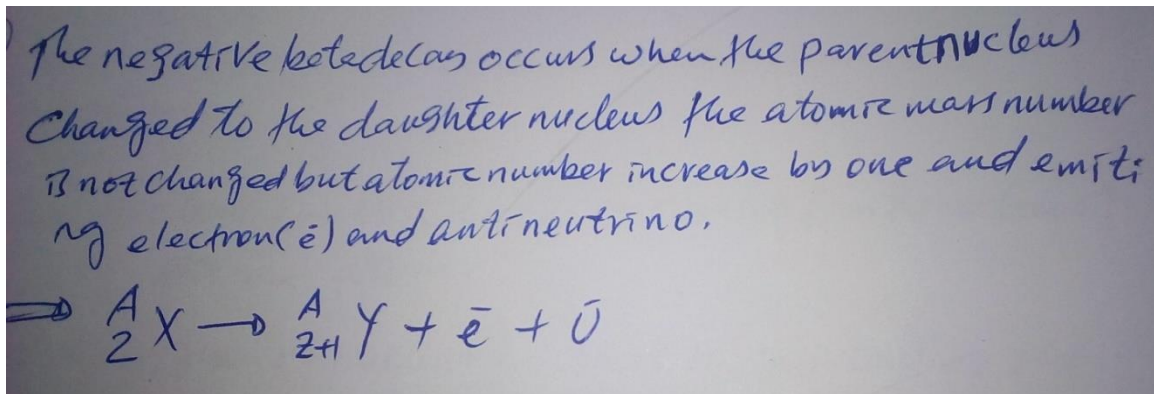 The negative betadecay occurs when the parentnucleus
Changed to the daughter nucleus the atomic mass number
is not changed but atomic number increase by one and emiti
ng electron(ē) and antineutrino.
⇒ ᴬ₂X → ᴬ_Z+1 Y + ē + ῡ